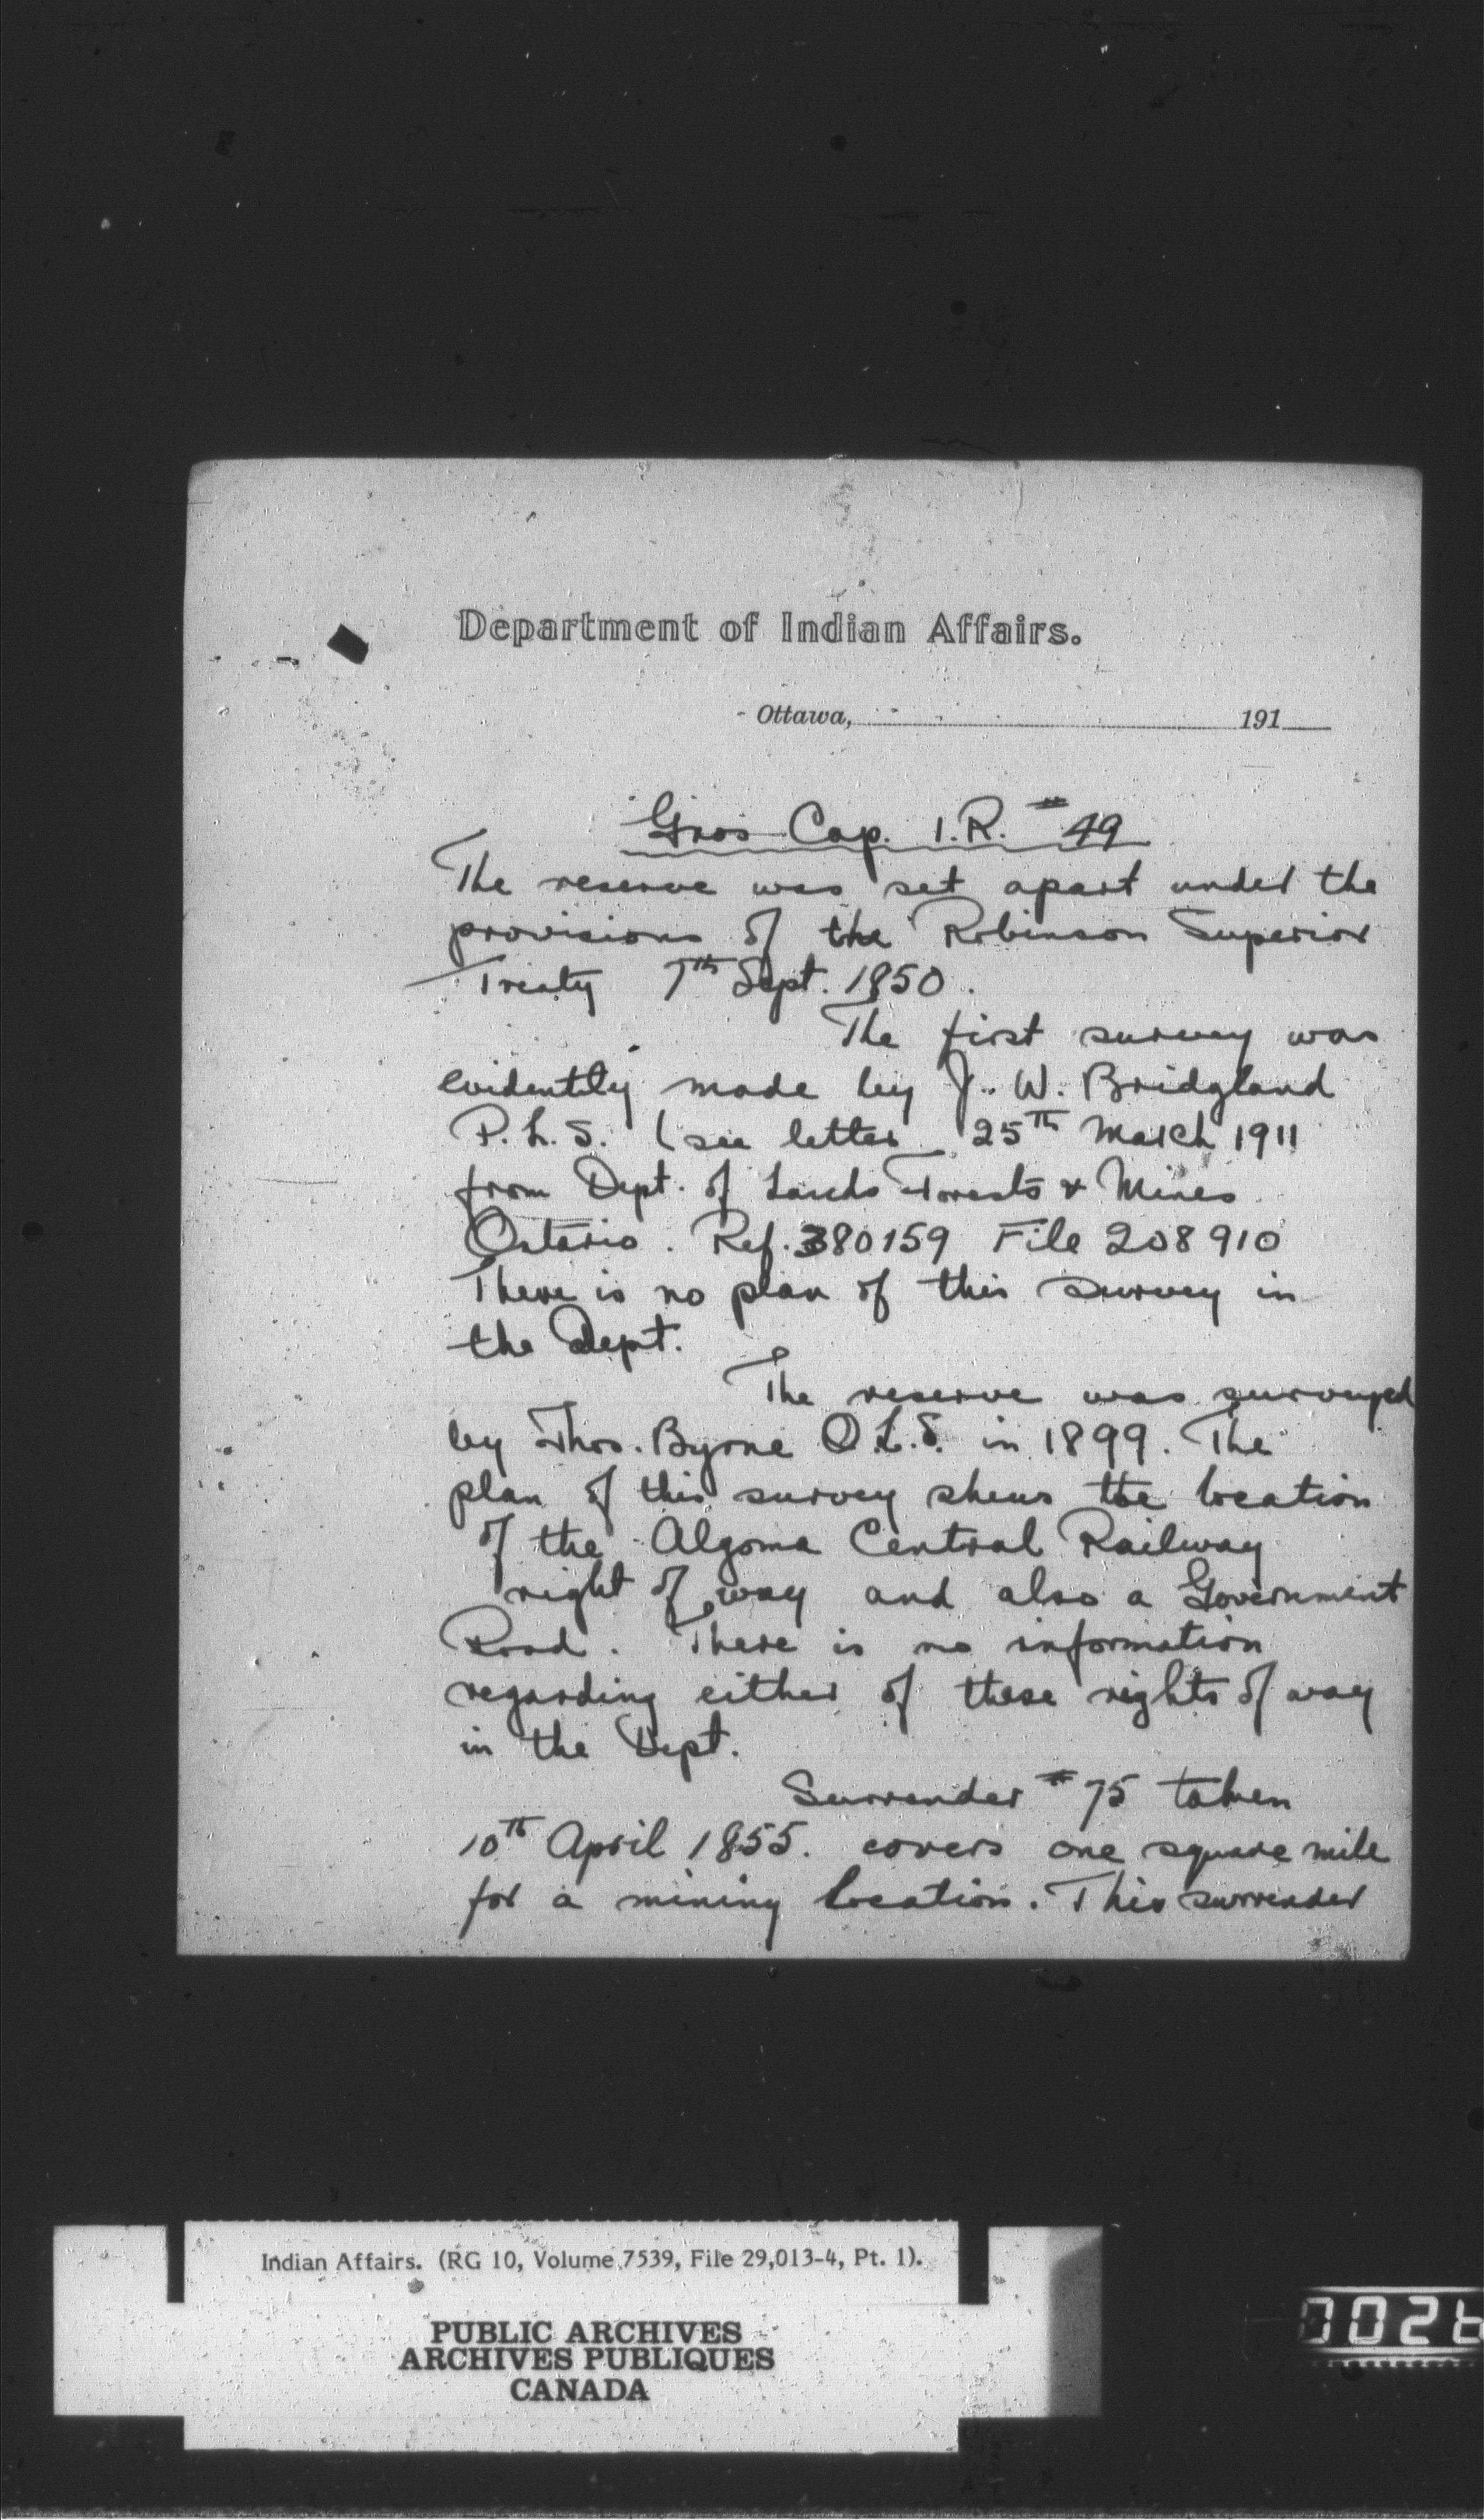 Department of Indian Affairs.
Ottawa, 191
Gros Cap. I.R. # 49
The reserve was set apart under the
provisions of the Robinson Superior
Treaty 7th Sept. 1850.
The first survey was
evidently made by J. W. Bridgland
P.L.S. (see letter 25th March 1911
from Dept. of Lands Forests & Mines
Ontario. Ref. 380159 File 208910
There is no plan of this survey in
the Dept.
The reserve was surveyed
by Thos. Byrne O.L.S. in 1899. The
plan of this survey shews the location
of the Algoma Central Railway
right of way and also a Government
Road. There is no information
regarding either of these rights of way
in the Dept.
Surrender # 75 taken
10th April 1855. covers one square mile
for a mining location. This surrender
Indian Affairs. (RG 10, Volume 7539, File 29,013-4, Pt. 1).
PUBLIC ARCHIVES
ARCHIVES PUBLIQUES
CANADA